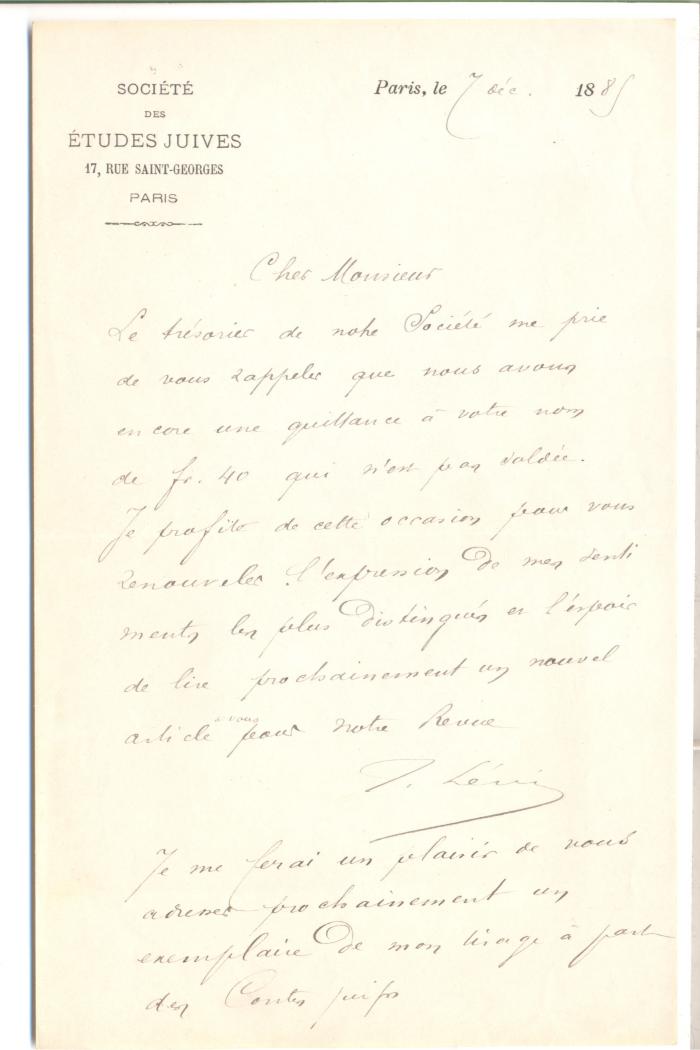 SOCIÉTÉ
DES
ÉTUDES JUIVES
17, RUE SAINT-GEORGES
PARIS
Paris, le 7 déc. 1885
Cher Monsieur
Le trésorier de notre Société me prie
de vous rappeler que nous avons
encore une quittance à votre nom
de fr. 40 qui n'est pas soldée.
Je profite de cette occasion pour vous
renouveler l'expression de mes senti
ments les plus distingués et l'espoir
de lire prochainement un nouvel
article à vous pour notre Revue
I. Lévi
Je me ferai un plaisir de vous
adresser prochainement un
exemplaire de mon tirage à part
des Contes juifs